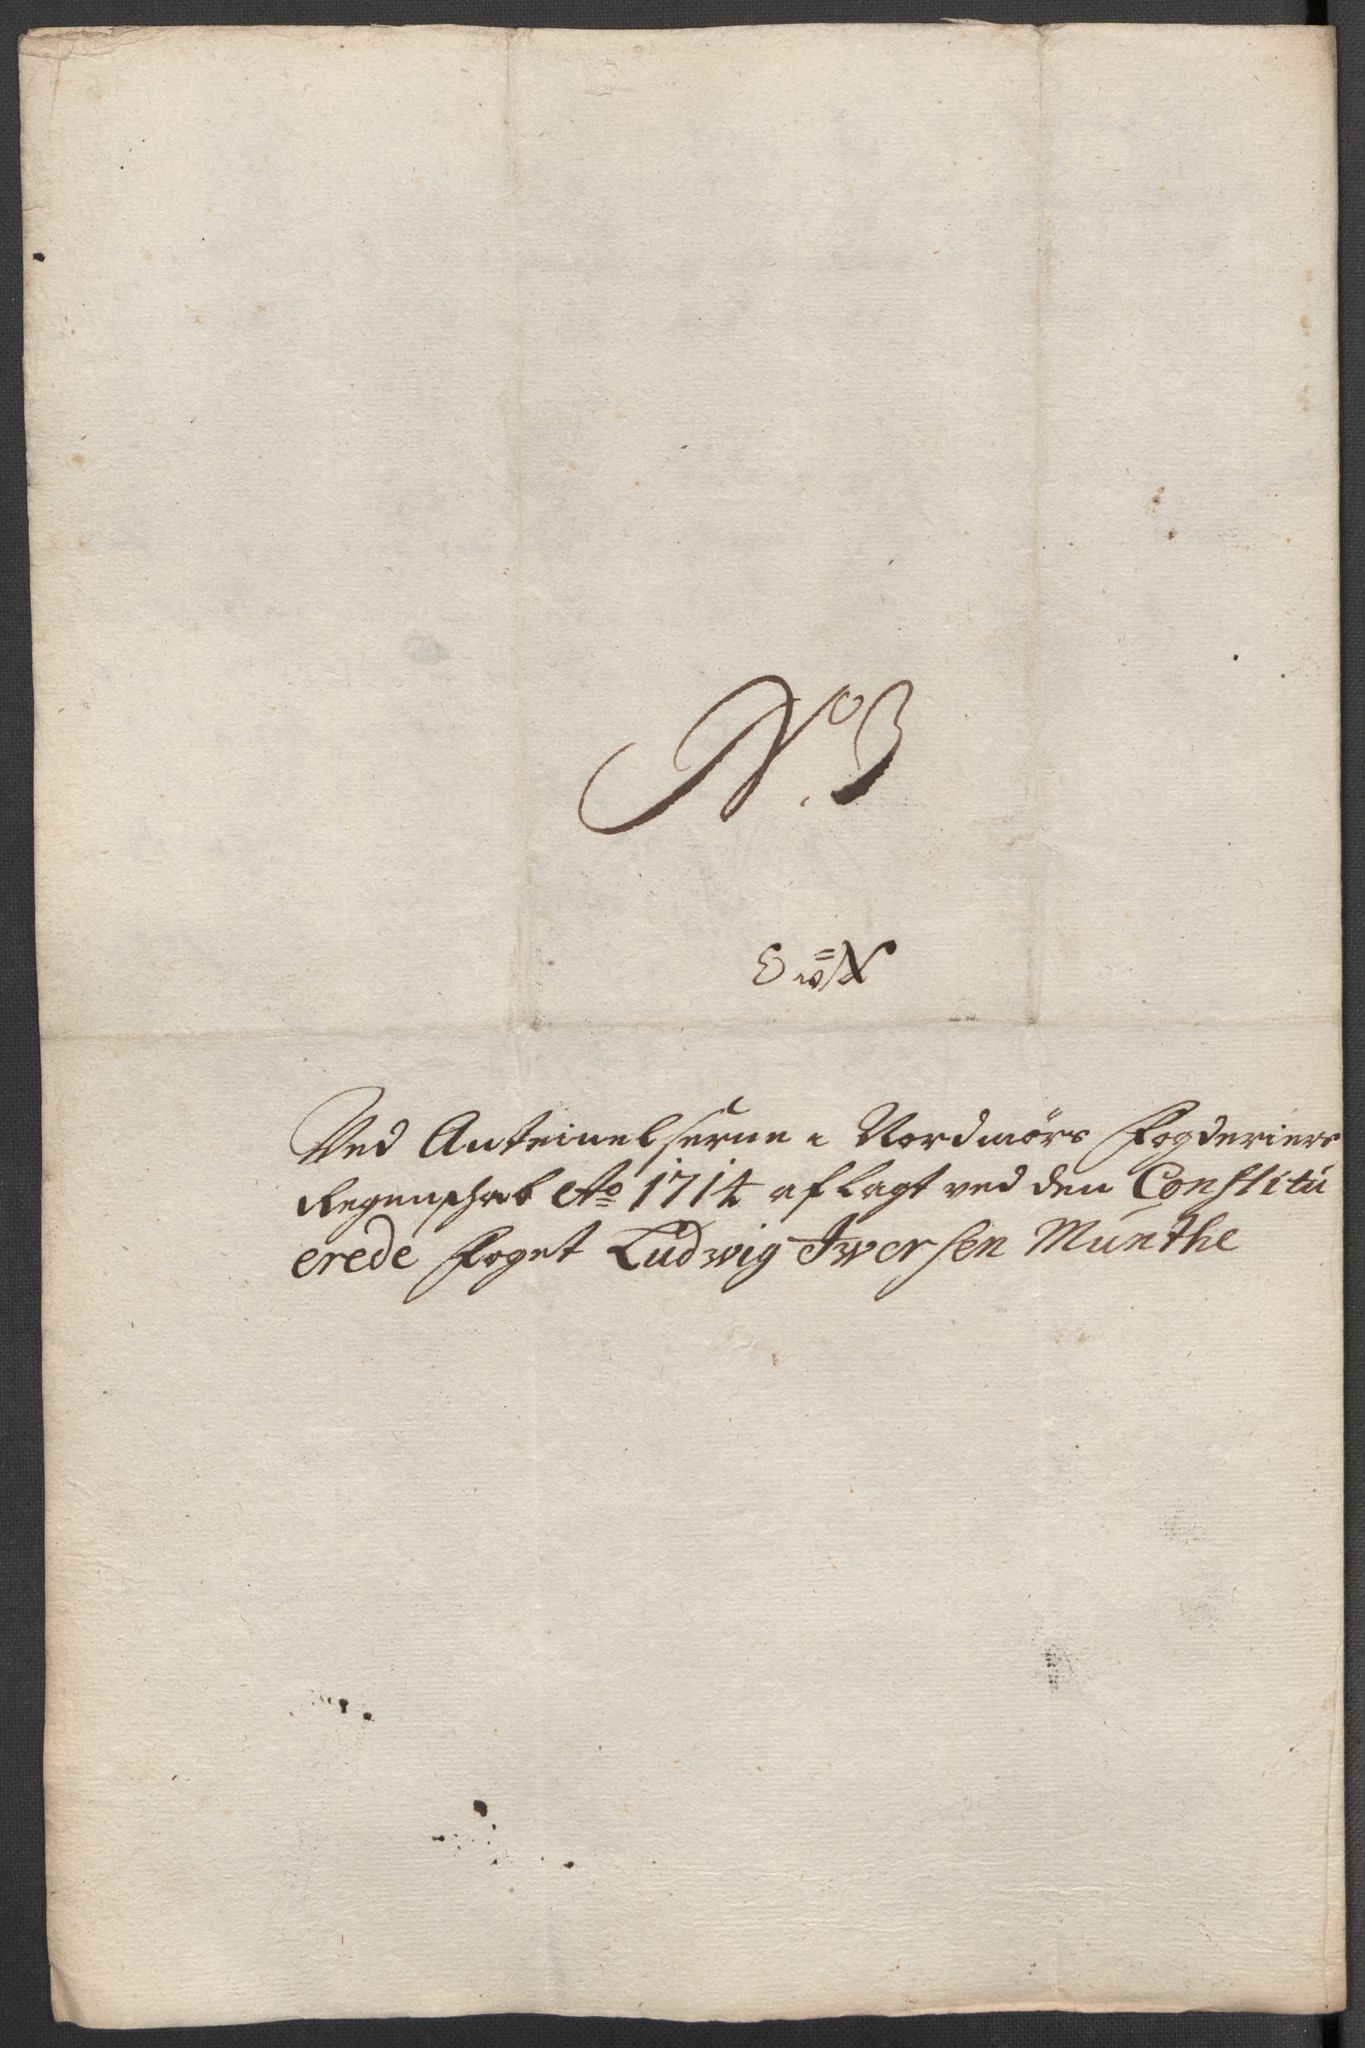 No 3
Ved Anteinelserne i Nordmörs Fogderiers
Regenschab Ao 1714 aflagt ved den Constitu
erede Foget Ludwig Iversen Munthe